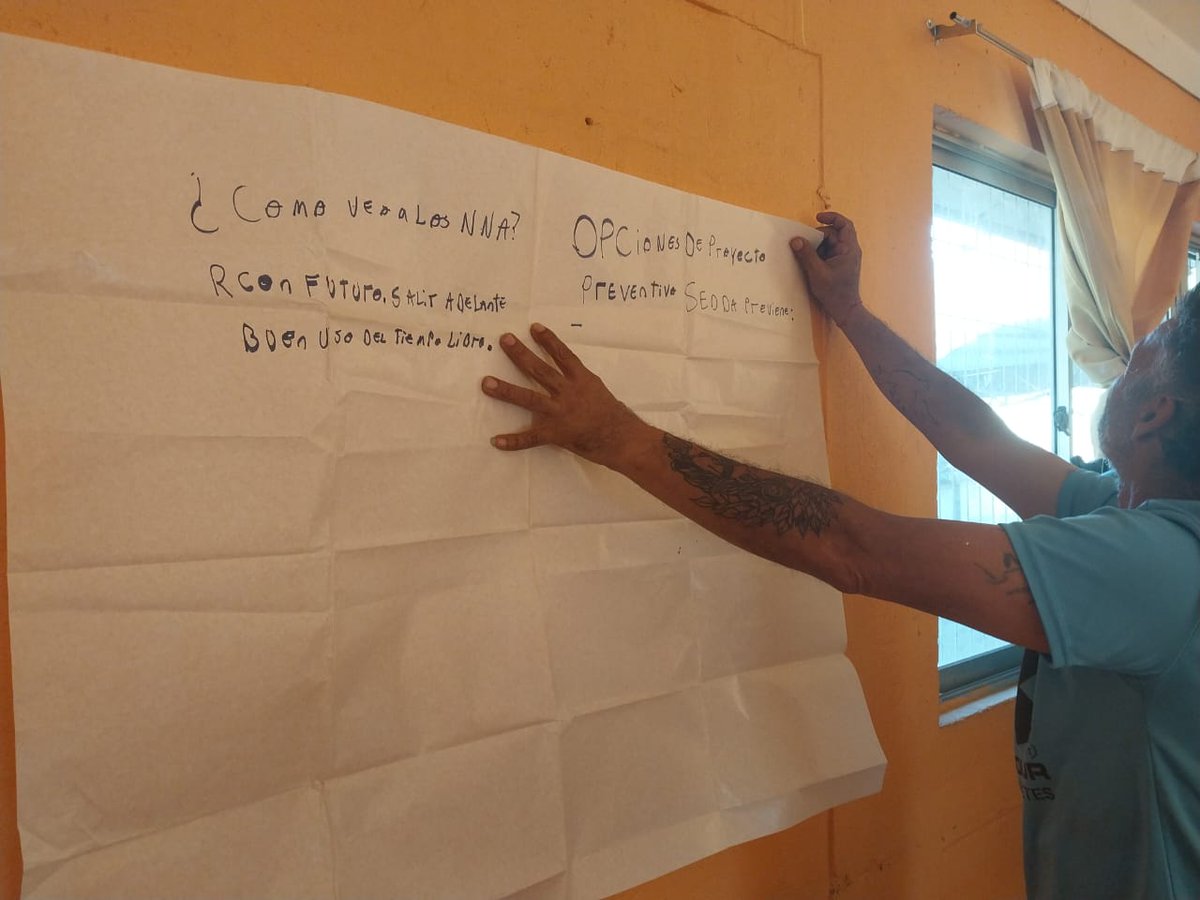 ¿Como veo a Los NNA?
R con FUTURO. SALIR ADELANTE
BUen USO DeL Tiempo LiBre.
OPCiONeS De Proyecto
Preventivo SeNDA Previene:
-